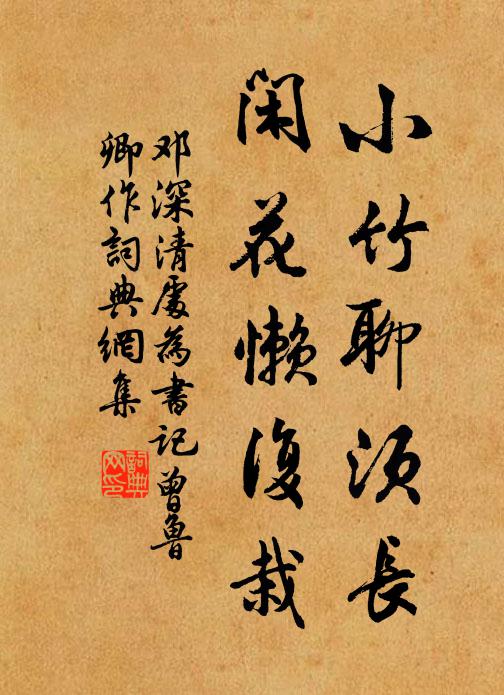 小竹聊須長
閑花懒復栽
邓深清處為書記曾魯
卿作詞典網集
詞典網印